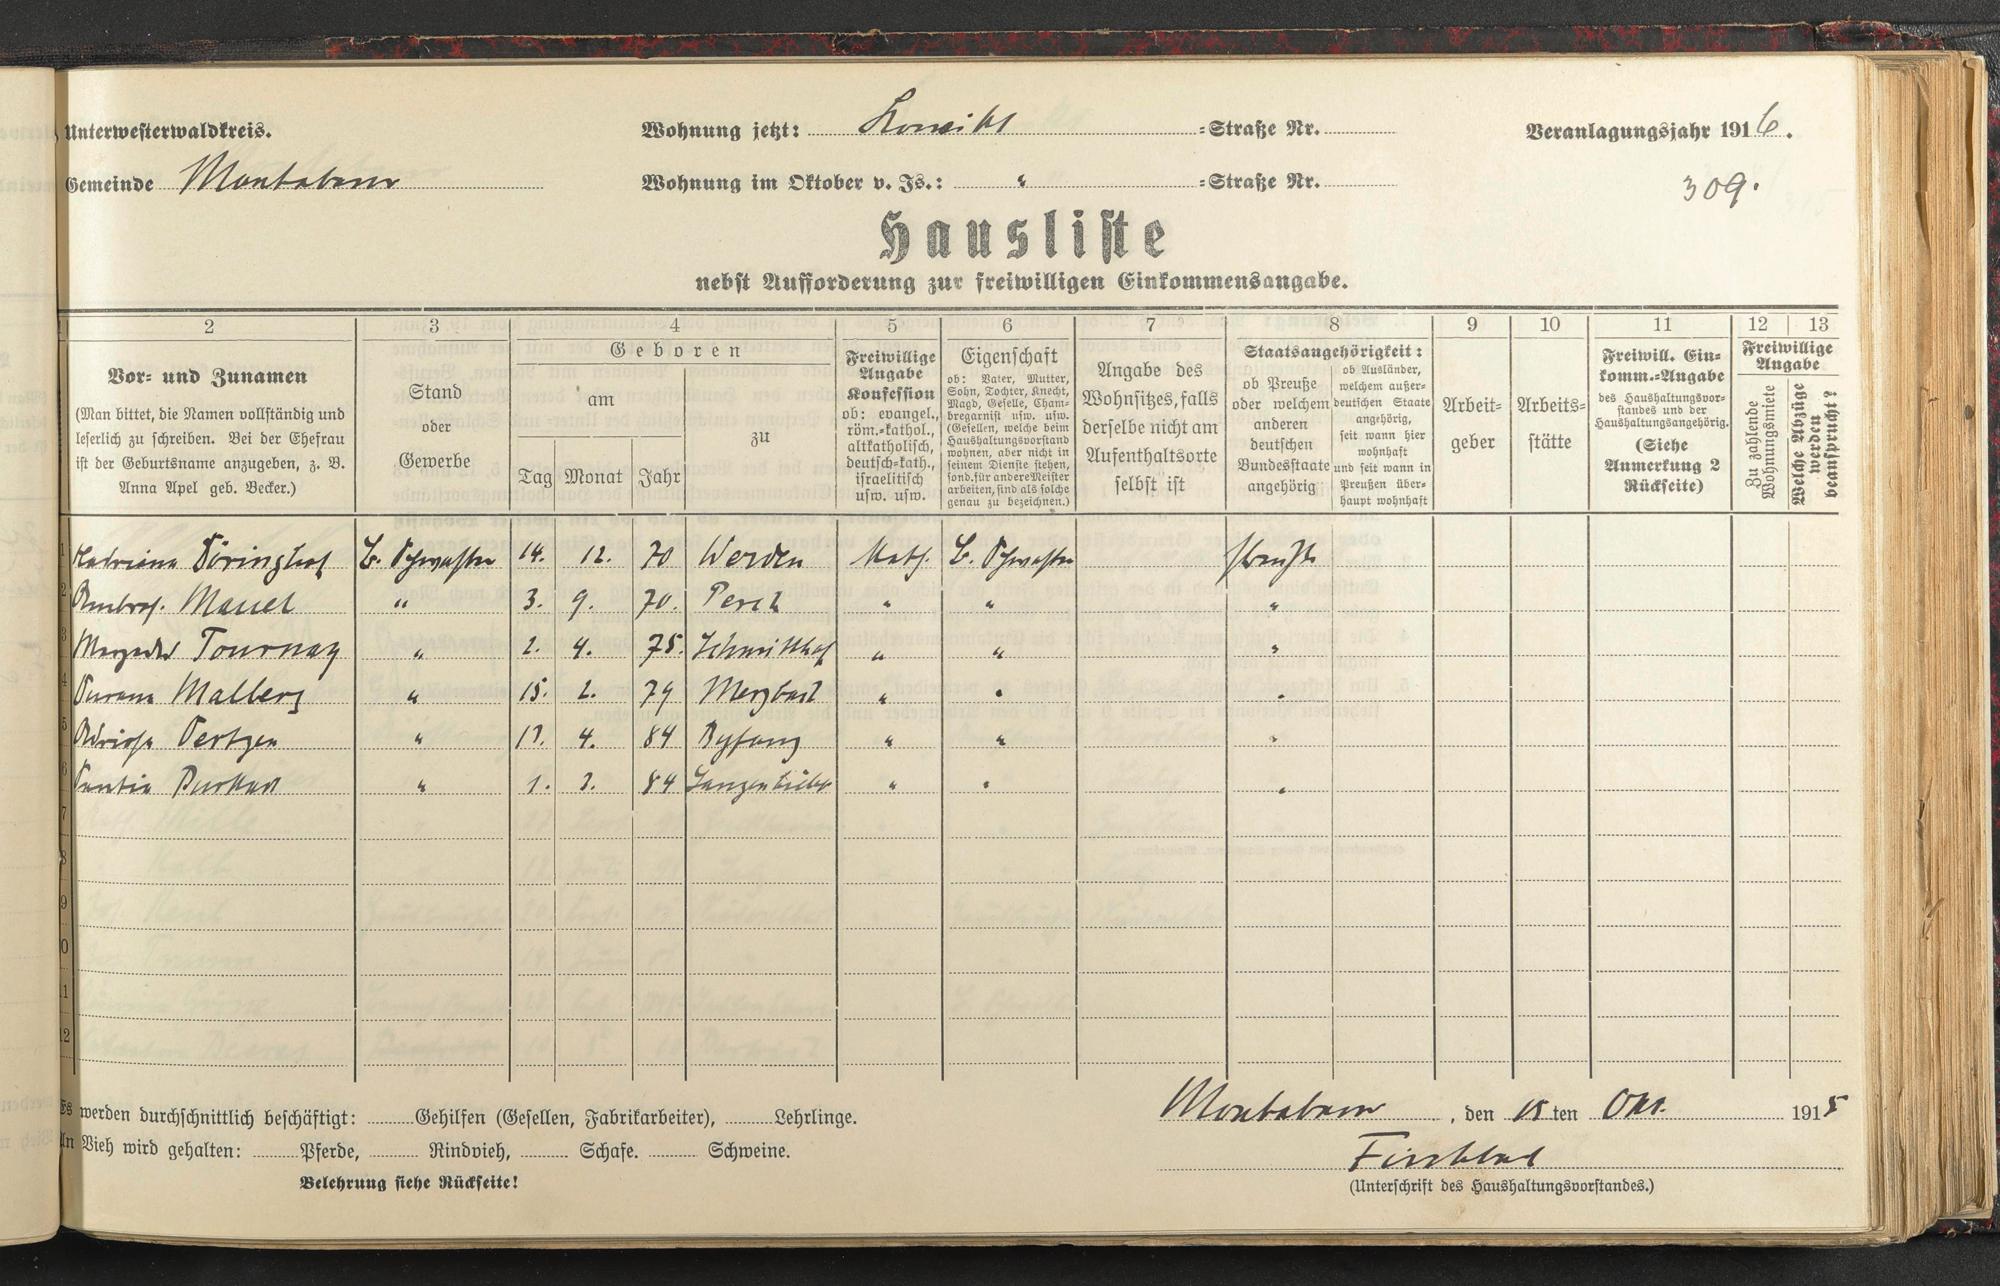 Unterwesterwaldkreis.
Wohnung jetzt: =Straße Nr.
Veranlagungsjahr 1916.
Gemeinde Montabaur
Wohnung im Oktober v. Js.: " =Straße Nr.
309.
Hausliste
nebst Aufforderung zur freiwilligen Einkommensangabe.
2 3 4 5 6 7 8 9 10 11 12 13
Vor- und Zunamen
(Man bittet, die Namen vollständig und
leserlich zu schreiben. Bei der Ehefrau
ist der Geburtsname anzugeben, z. B.
Anna Apel geb. Becker.)
Stand
oder
Gewerbe
Geboren
am
Tag Monat Jahr
zu
Freiwillige
Angabe
Konfession
ob: evangel.,
röm.-kathol.,
altkatholisch,
deutsch-kath.,
israelitisch
usw. usw.
Eigenschaft
ob: Vater, Mutter,
Sohn, Tochter, Knecht,
Magd, Geselle, Cham-
bregarnist usw. usw.
(Gesellen, welche beim
Haushaltungsvorstand
wohnen, aber nicht in
seinem Dienste stehen,
sond. für andere Meister
arbeiten, sind als solche
genau zu bezeichnen.)
Angabe des
Wohnsitzes, falls
derselbe nicht am
Aufenthaltsorte
selbst ist
Staatsangehörigkeit:
ob Preuße
oder welchem
anderen
deutschen
Bundesstaate
angehörig
ob Ausländer,
welchem außer-
deutschen Staate
angehörig,
seit wann hier
wohnhaft
und seit wann in
Preußen über-
haupt wohnhaft
Arbeit-
geber
Arbeits-
stätte
Freiwill. Ein-
komm.-Angabe
des Haushaltungsvor-
standes und der
Haushaltungsangehörig.
(Siehe
Anmerkung 2
Rückseite)
Freiwillige
Angabe
Zu zahlende
Wohnungsmiete
Welche Abzüge
werden
beansprucht?
1 Döringhof B. Schwester 14. 12. 70 Werden Kath. B. Schwester Preuße
2 Manet " 3. 9. 70. " " "
3 Tournay " 2. 4. 75. Schmitthof " " "
4 Malberg " 15. 2. 79 Merzbach " " "
5 Pertzen " 17. 4. 84 Byfang " " "
6 " 1. 3. 84 Langenbieber " " "
7
8
9
10
11
12
Es werden durchschnittlich beschäftigt: Gehilfen (Gesellen, Fabrikarbeiter), Lehrlinge.
An Vieh wird gehalten: Pferde, Rindvieh, Schafe. Schweine.
Belehrung siehe Rückseite!
Montabaur, den 15ten Okt. 1915
(Unterschrift des Haushaltungsvorstandes.)